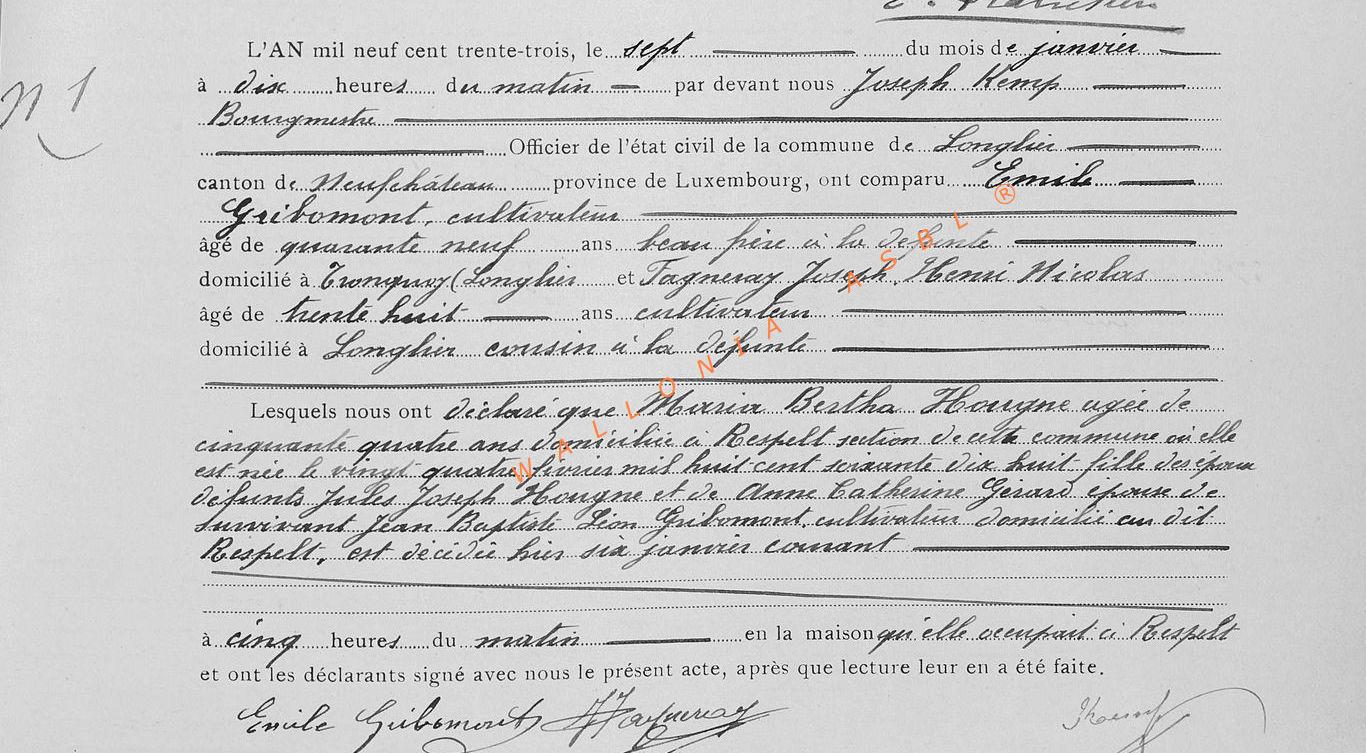 N 1
L'AN mil neuf cent trente-trois, le sept du mois de janvier
à dix heures du matin par devant nous Joseph Kemp
Bourgmestre
Officier de l'état civil de la commune de Longlier
canton de Neufchâteau province de Luxembourg, ont comparu Emile
Gribomont, cultivateur
âgé de quarante neuf ans beau frère à la défunte
domicilié à Tronquoy (Longlier et Fagneray Joseph, Henri Nicolas
âgé de trente huit ans cultivateur
domicilié à Longlier cousin à la défunte
Lesquels nous ont déclaré que Maria Bertha Hougne agée de
cinquante quatre ans domiciliée à Respelt section de cette commune où elle
est née le vingt quatre février mil huit cent soixante dix huit fille des époux
défunts Jules Joseph Hougne et de Anne Catherine Gérard, épouse de
survivant Jean Baptiste Léon Gribomont, cultivateur domicilié au dit
Respelt, est décédée hier six janvier courant
à cinq heures du matin en la maison qu'elle occupait à Respelt
et ont les déclarants signé avec nous le présent acte, après que lecture leur en a été faite.
Emile Gribomont Fagneray JKemp
WALLONIA ASBL ®